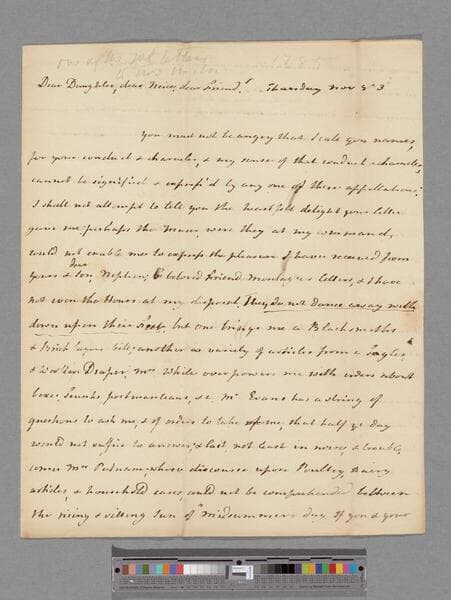 one of the
1785
Dear Daughter, dear Niece, dear Friend. Thursday Nov 3d
You must not be angry that I call you names,
for your conduct & character, & my sense of that conduct & character,
cannot be signified & express'd by any one of these appellations;
I shall not attempt to tell you the heartfelt delight your letter
gave me; perhaps the Muses, were they at my command,
could not enable me to express the pleasure I have received from
yours & dear Son, Nephew, & beloved Friend Montagu's letters, & I have
not even the Hours at my disposal, they do not dance away with
down upon their Feet, but one brings me a Blacksmiths
& Brick layers bill; another a variety of articles from a Taylor,
& Woolen Draper, Mrs White overpowers me with orders about
boxes, Trunks portmanteaus, &c, Mr Evans has a string of
questions to ask me, & of orders to take of me, that half ye day
would not suffice to answer; & last, not least in noise, & trouble,
comes Mrs Putnam, whose discourse upon Poultry, dairy
articles, & household cares, could not be comprehended between
the rising & setting Sun of a Midsummers day. If you & your